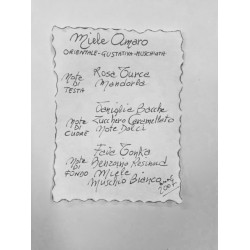 Miele Amaro
ORIENTALE-GUSTATIVA-MUSCHIATA
Note DI TESTA
Rosa Turca
Mandorla
Note DI CUORE
Vaniglia Bacche
Zucchero Caramellato
Note Dolci
Note DI FONDO
Fava Tonka
Benzoino Resinoid
Miele
Muschio Bianco